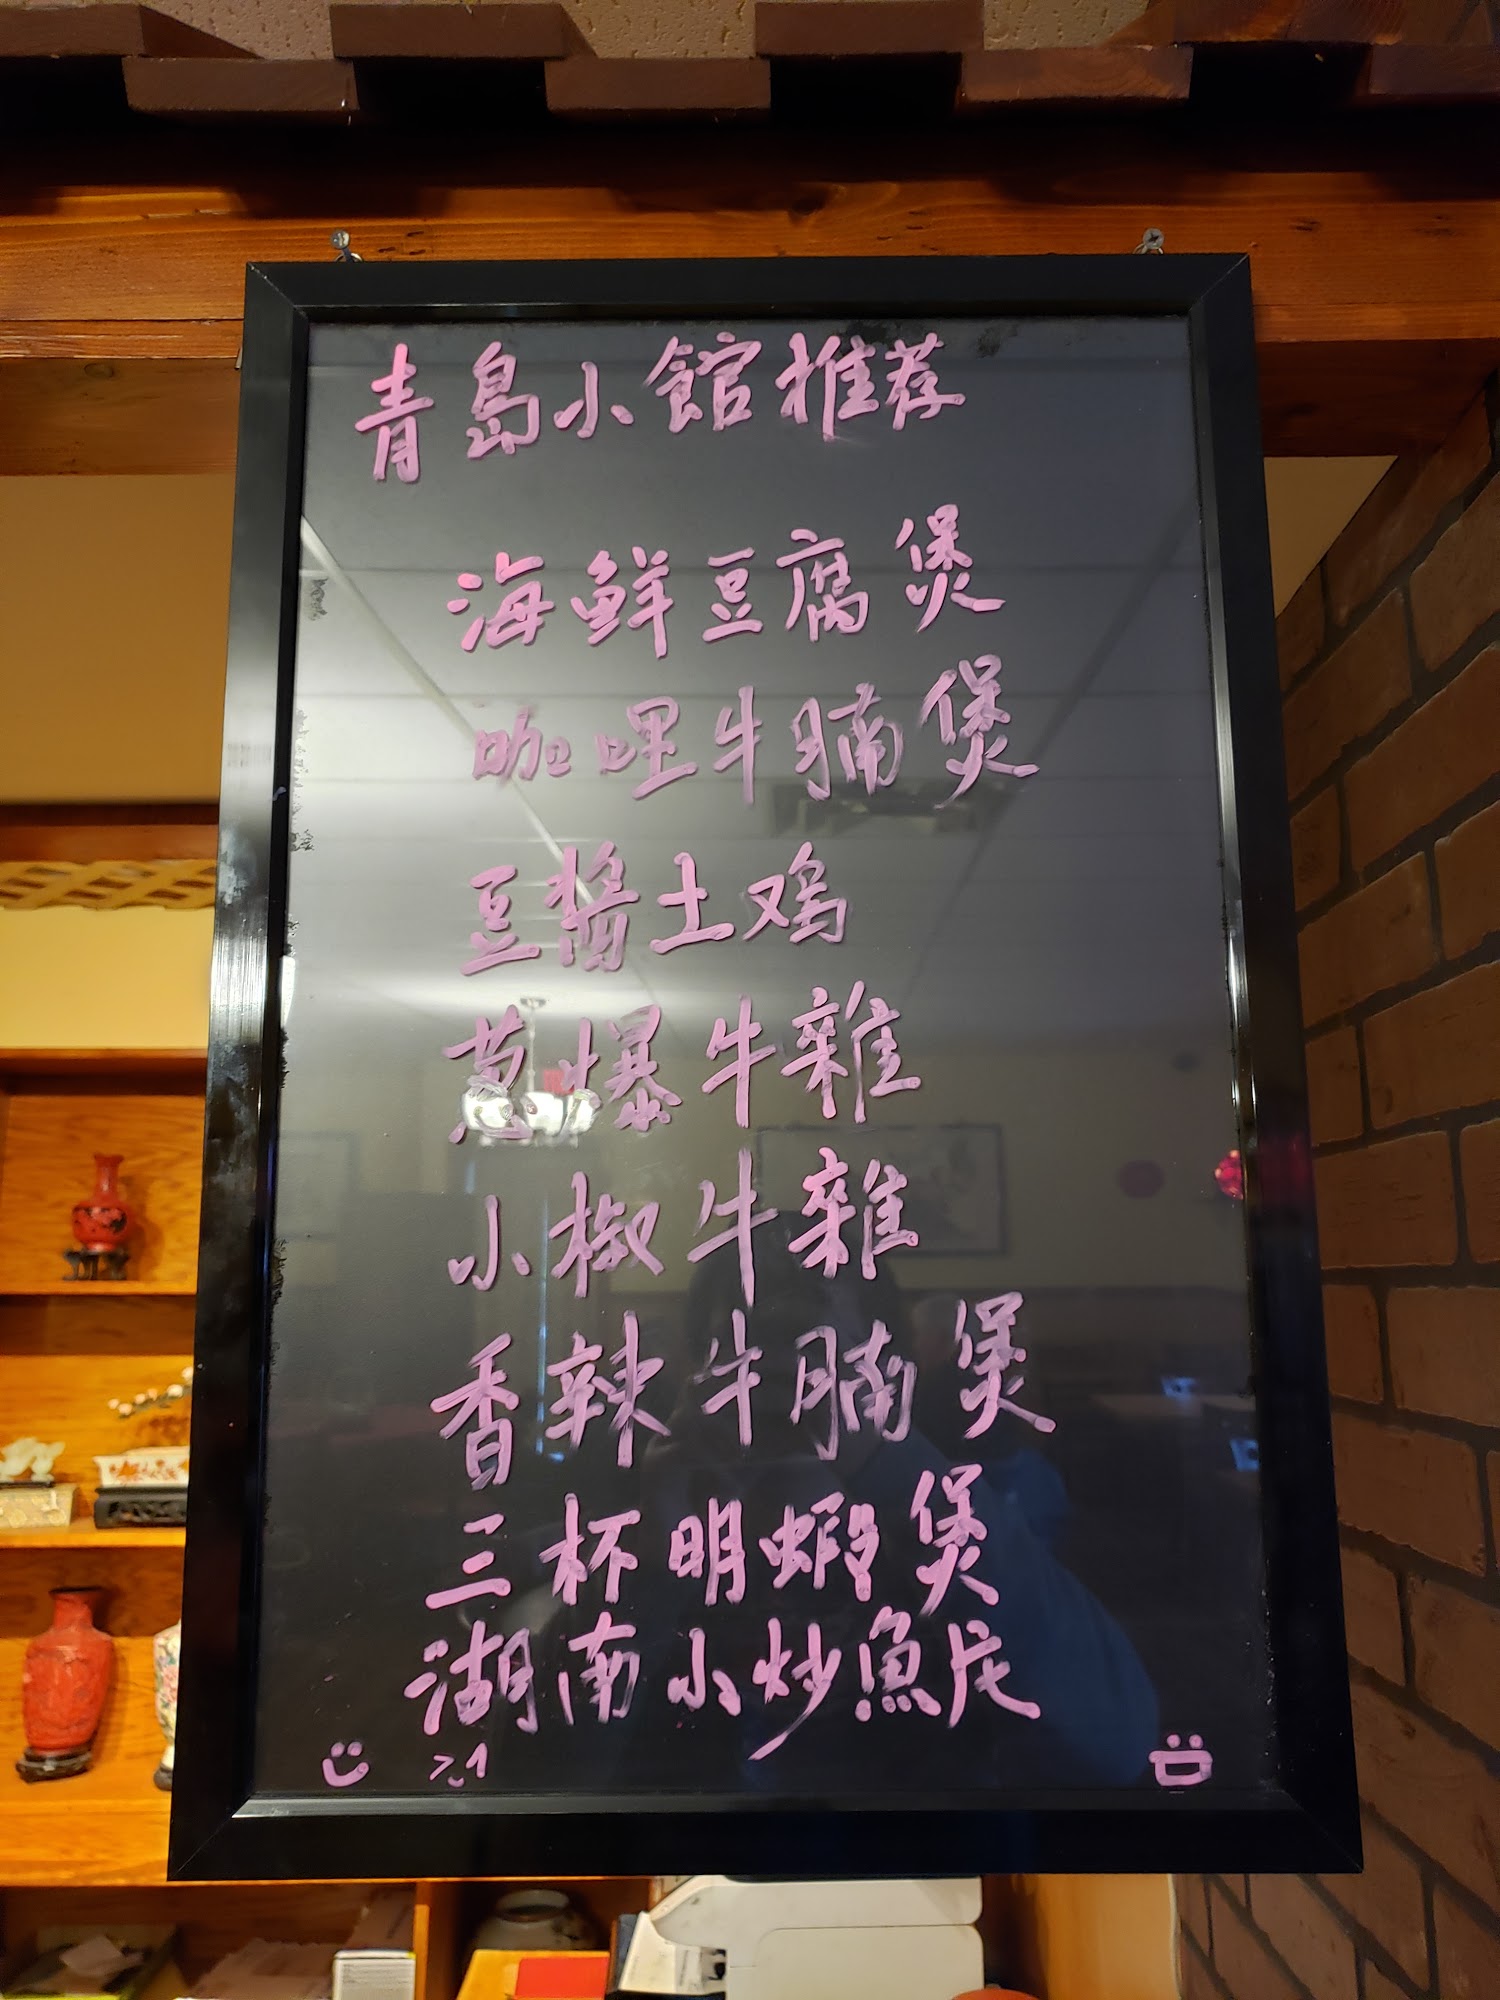 青島小館推荐
海鮮豆腐煲
咖哩牛腩煲
豆醬土鸡
葱爆牛雜
小椒牛雜
香辣牛腩煲
三杯明蝦煲
湖南小炒魚片